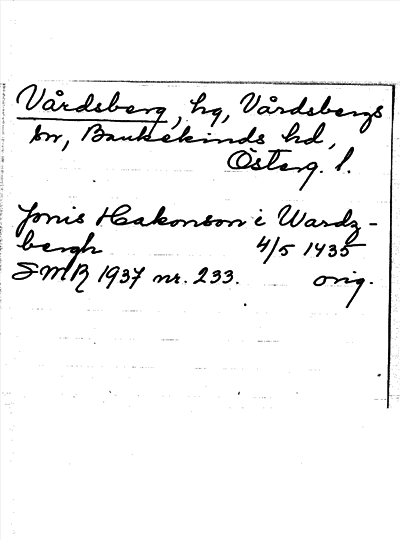 Vårdsberg, hg, Vårdsbergs
sn, Bankekinds hd,
Österg. l.
Jonis Hakonson i Wardz-
bergh 4/5 1435
SMR 1937 nr. 233. orig.